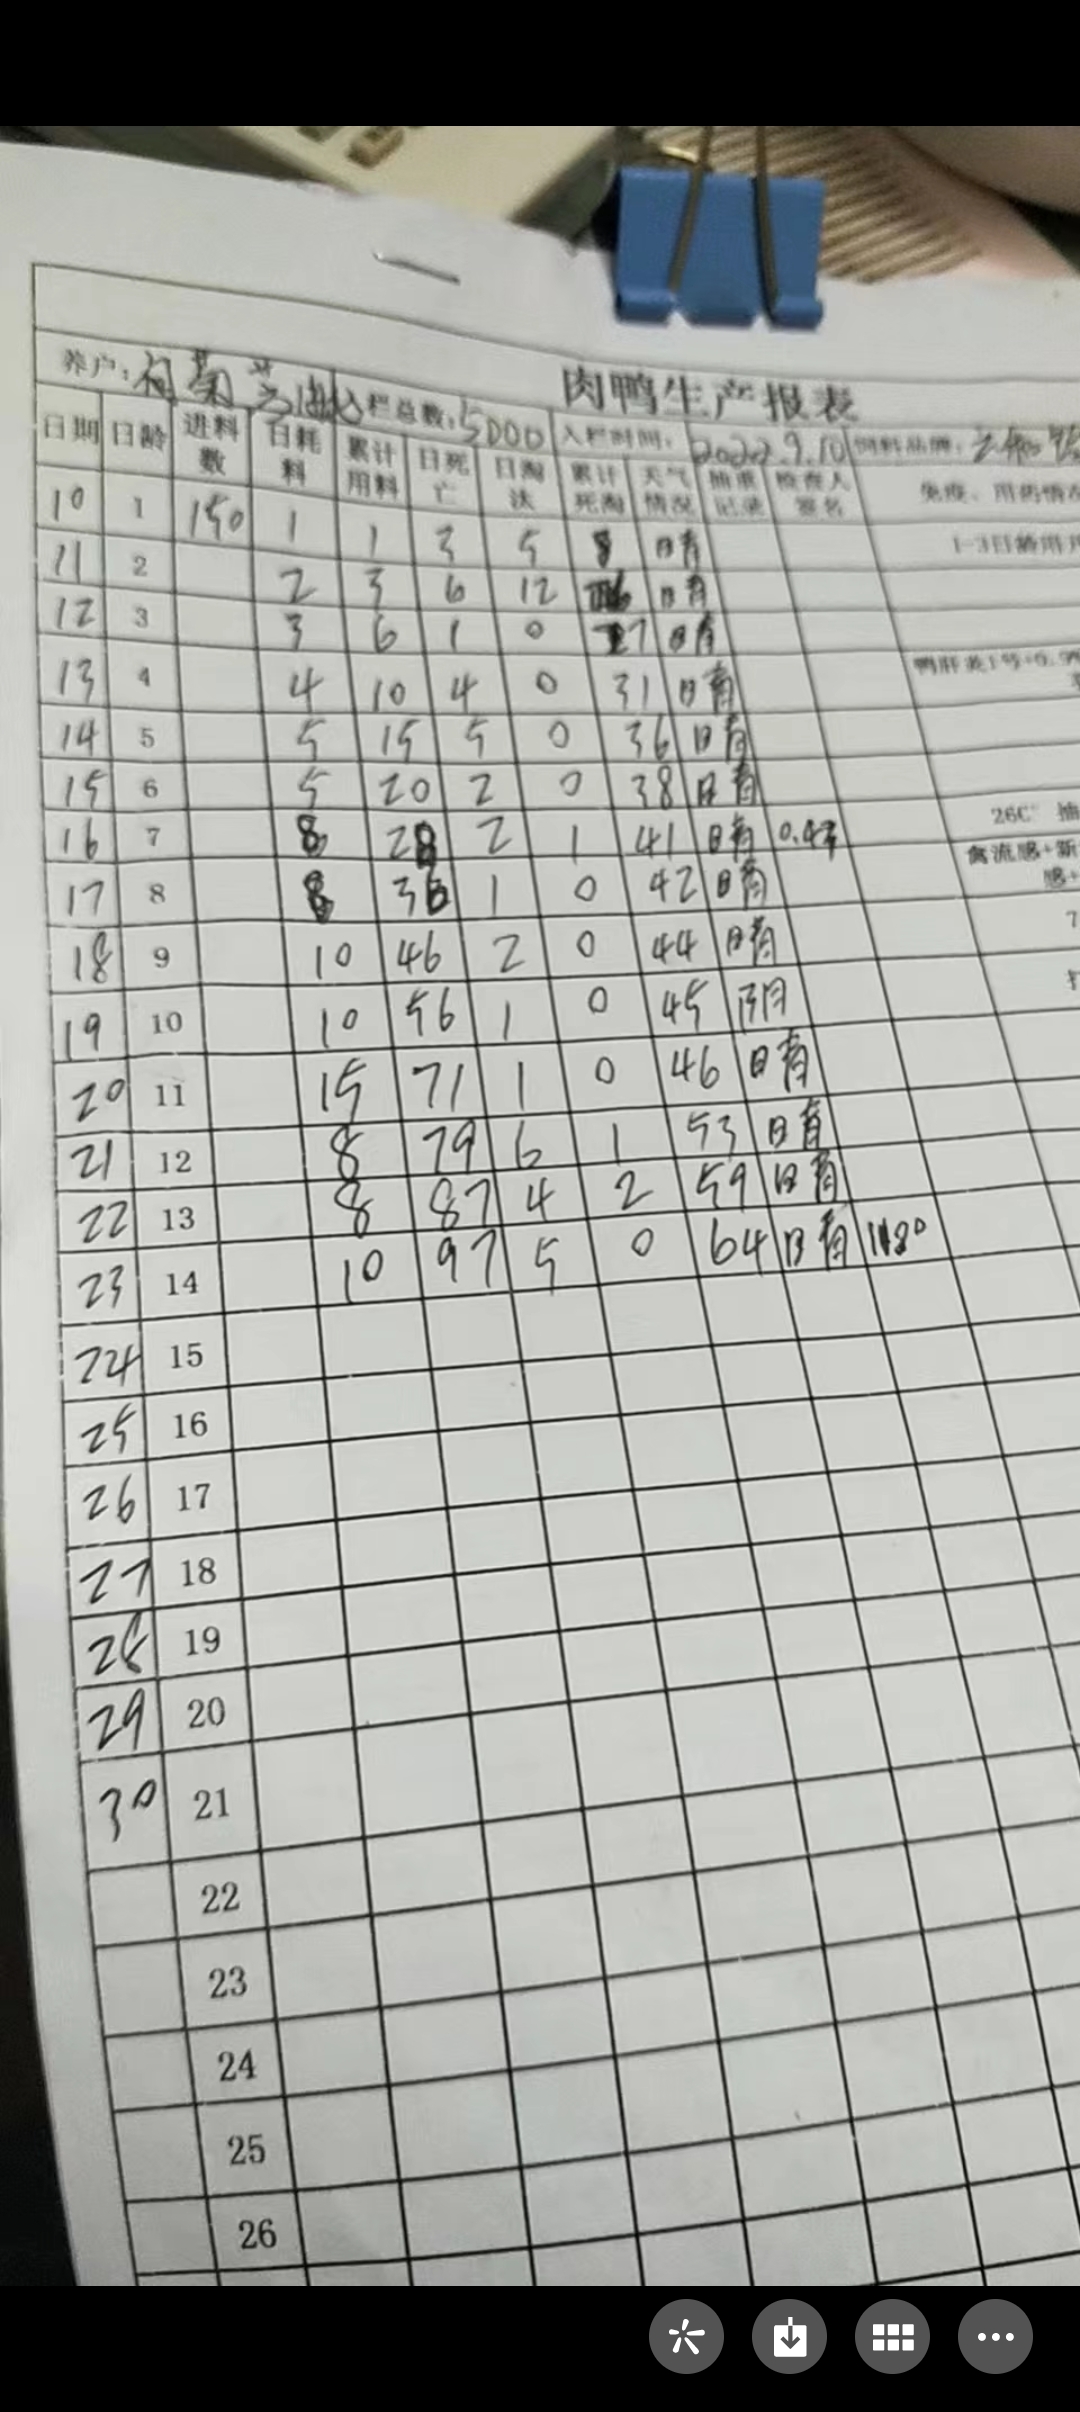 肉鸭生产报表
养户: 菊兰 入栏总数: 5000 入栏时间: 2022.9.10 饲料品牌:
日期 日龄 进料数 日耗料 累计用料 日死亡 日淘汰 累计死淘 天气情况 抽重记录 检查人签名 免疫、用药情
10 1 150 1 1 3 5 8 晴 1-3日龄用
11 2 2 3 6 12 26 晴
12 3 3 6 1 0 27 晴
13 4 4 10 4 0 31 晴 鸭肝炎1号+0.5
14 5 5 15 5 0 36 晴
15 6 5 20 2 0 38 晴
16 7 8 28 2 1 41 晴 26C° 抽
17 8 8 36 1 0 42 晴 禽流感+新
感+
18 9 10 46 2 0 44 晴 7
19 10 10 56 1 0 45 阴
20 11 15 71 1 0 46 晴
21 12 8 79 6 1 53 晴
22 13 8 87 4 2 59 晴
23 14 10 97 5 0 64 晴
24 15
25 16
26 17
27 18
28 19
29 20
30 21
22
23
24
25
26